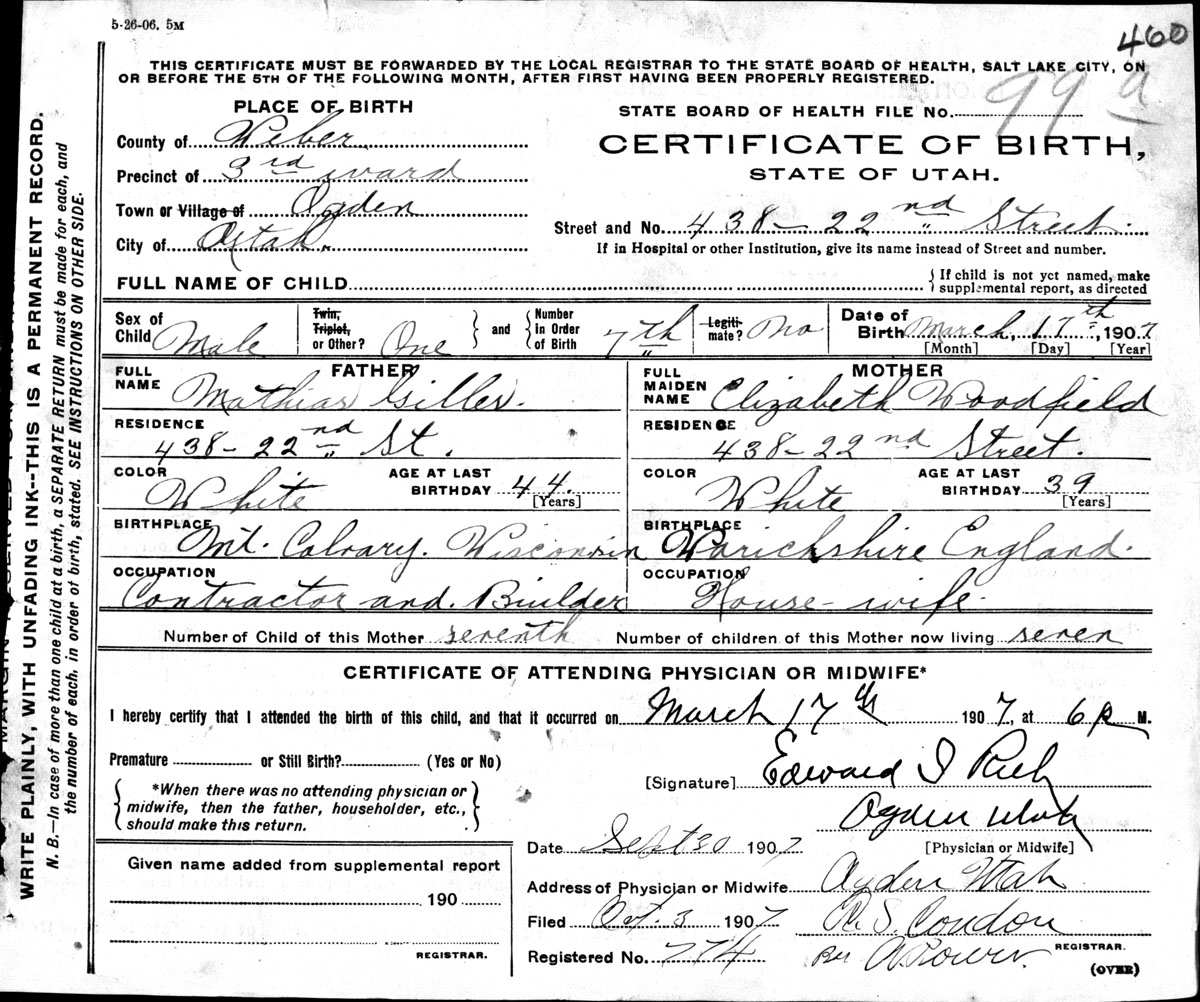 5-26-06. 5M
460
THIS CERTIFICATE MUST BE FORWARDED BY THE LOCAL REGISTRAR TO THE STATE BOARD OF HEALTH, SALT LAKE CITY, ON
OR BEFORE THE 5TH OF THE FOLLOWING MONTH, AFTER FIRST HAVING BEEN PROPERLY REGISTERED.
WRITE PLAINLY, WITH UNFADING INK--THIS IS A PERMANENT RECORD.
N. B.—In case of more than one child at a birth, a SEPARATE RETURN must be made for each, and
the number of each, in order of birth, stated. SEE INSTRUCTIONS ON OTHER SIDE.
PLACE OF BIRTH
County of Weber
Precinct of 3rd ward
Town or Village of Ogden
City of Utah.
STATE BOARD OF HEALTH FILE No. 99 a
CERTIFICATE OF BIRTH,
STATE OF UTAH.
Street and No. 438 - 22nd Street.
If in Hospital or other Institution, give its name instead of Street and number.
FULL NAME OF CHILD
If child is not yet named, make
supplemental report, as directed
Sex of Child Male
Twin, Triplet, or Other? One
and Number in Order of Birth 7th
Legitimate? No
Date of Birth March, 17th, 1907
[Month] [Day] [Year]
FATHER
FULL NAME Mathias Giller.
RESIDENCE
438 - 22nd St.
COLOR White AGE AT LAST BIRTHDAY 44. [Years]
BIRTHPLACE
Mt. Calvary. Wisconsin
OCCUPATION
Contractor and. Builder
MOTHER
FULL MAIDEN NAME Elizabeth Woodfield
RESIDENCE
438 - 22nd Street.
COLOR White AGE AT LAST BIRTHDAY 39 [Years]
BIRTHPLACE
Warickshire England.
OCCUPATION
House-wife.
Number of Child of this Mother seventh Number of children of this Mother now living seven
CERTIFICATE OF ATTENDING PHYSICIAN OR MIDWIFE*
I hereby certify that I attended the birth of this child, and that it occurred on March 17th 1907, at 6 P M.
Premature or Still Birth? (Yes or No)
*When there was no attending physician or
midwife, then the father, householder, etc.,
should make this return.
[Signature] Edward I Rich
Ogden Utah
[Physician or Midwife]
Date Sept 30 1907
Address of Physician or Midwife Ogden Utah
Filed Oct. 3 1907 R. S. Condon
REGISTRAR.
Registered No. 774 Per
(OVER)
Given name added from supplemental report
190
REGISTRAR.